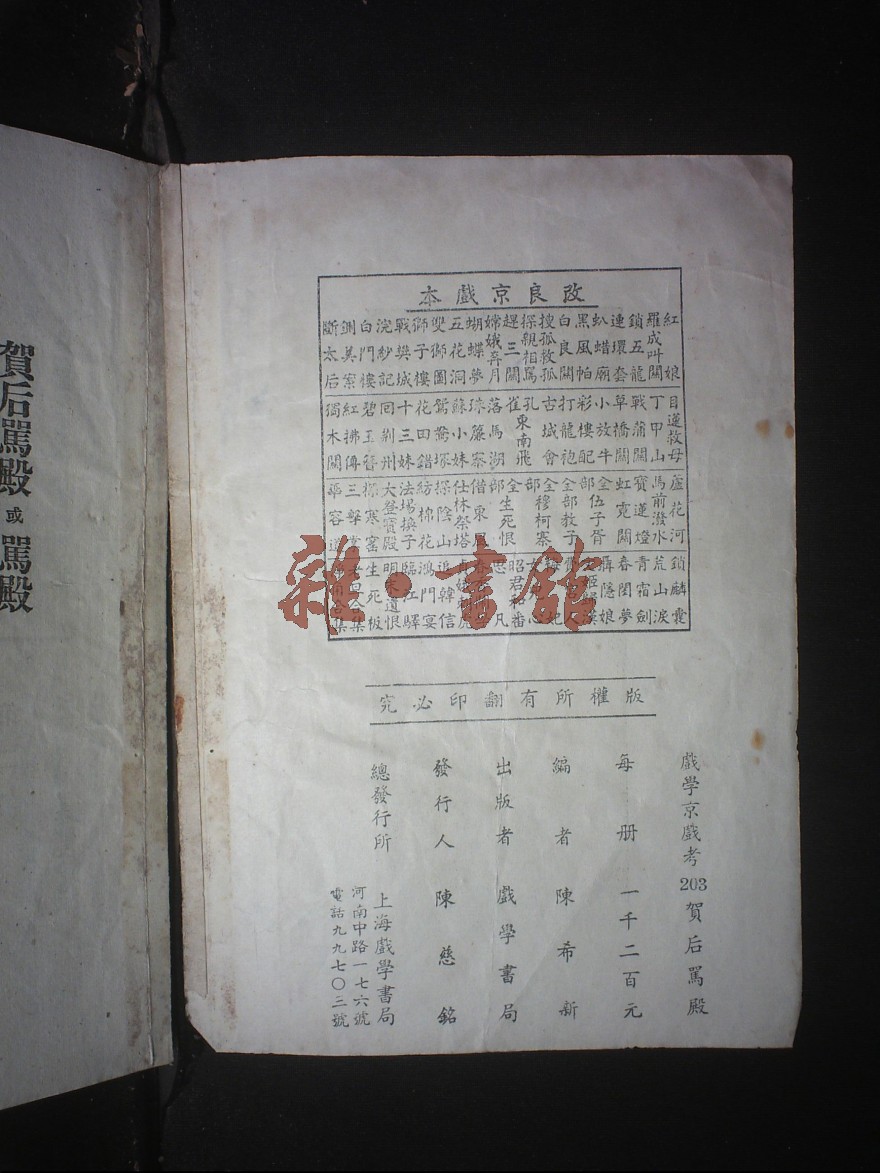 賀后罵殿 或 罵殿
改良京戲本
紅娘
羅成叫關
鎖五龍
連環套
虮蜡廟
黑風帕
白良關
搜孤救孤
探親相罵
趕三關
嫦娥奔月
蝴蝶夢
五花洞
雙獅圖
獅子樓
戰樊城
浣紗記
白門樓
鍘美案
斷太后
目蓮救母
丁甲山
戰蒲關
草橋關
小放牛
彩樓配
打龍袍
古城會
孔雀東南飛
落馬湖
珠簾寨
蘇小妹
鴛鴦塚
花田錯
十三妹
回荆州
碧玉簪
紅拂傳
獨木關
蘆花河
馬前潑水
寶蓮燈
虹霓關
全部伍子胥
全部教子
全部穆柯寨
全部生死恨
借東風
仕林祭塔
探陰山
紡棉花
法場換子
大登寶殿
探寒窑
三擊掌
華容道
鎖麟囊
荒山淚
青霜劍
春閨夢
聶隱娘
昭君和番
思凡
追韓信
鴻門宴
臨江驛
明末遺恨
生死板
雜·書館
版權所有翻印必究
戲學京戲考 203 賀后罵殿
每册 一千二百元
編者 陳希新
出版者 戲學書局
發行人 陳慈銘
總發行所 上海戲學書局
河南中路一七六號
電話九九七〇二號